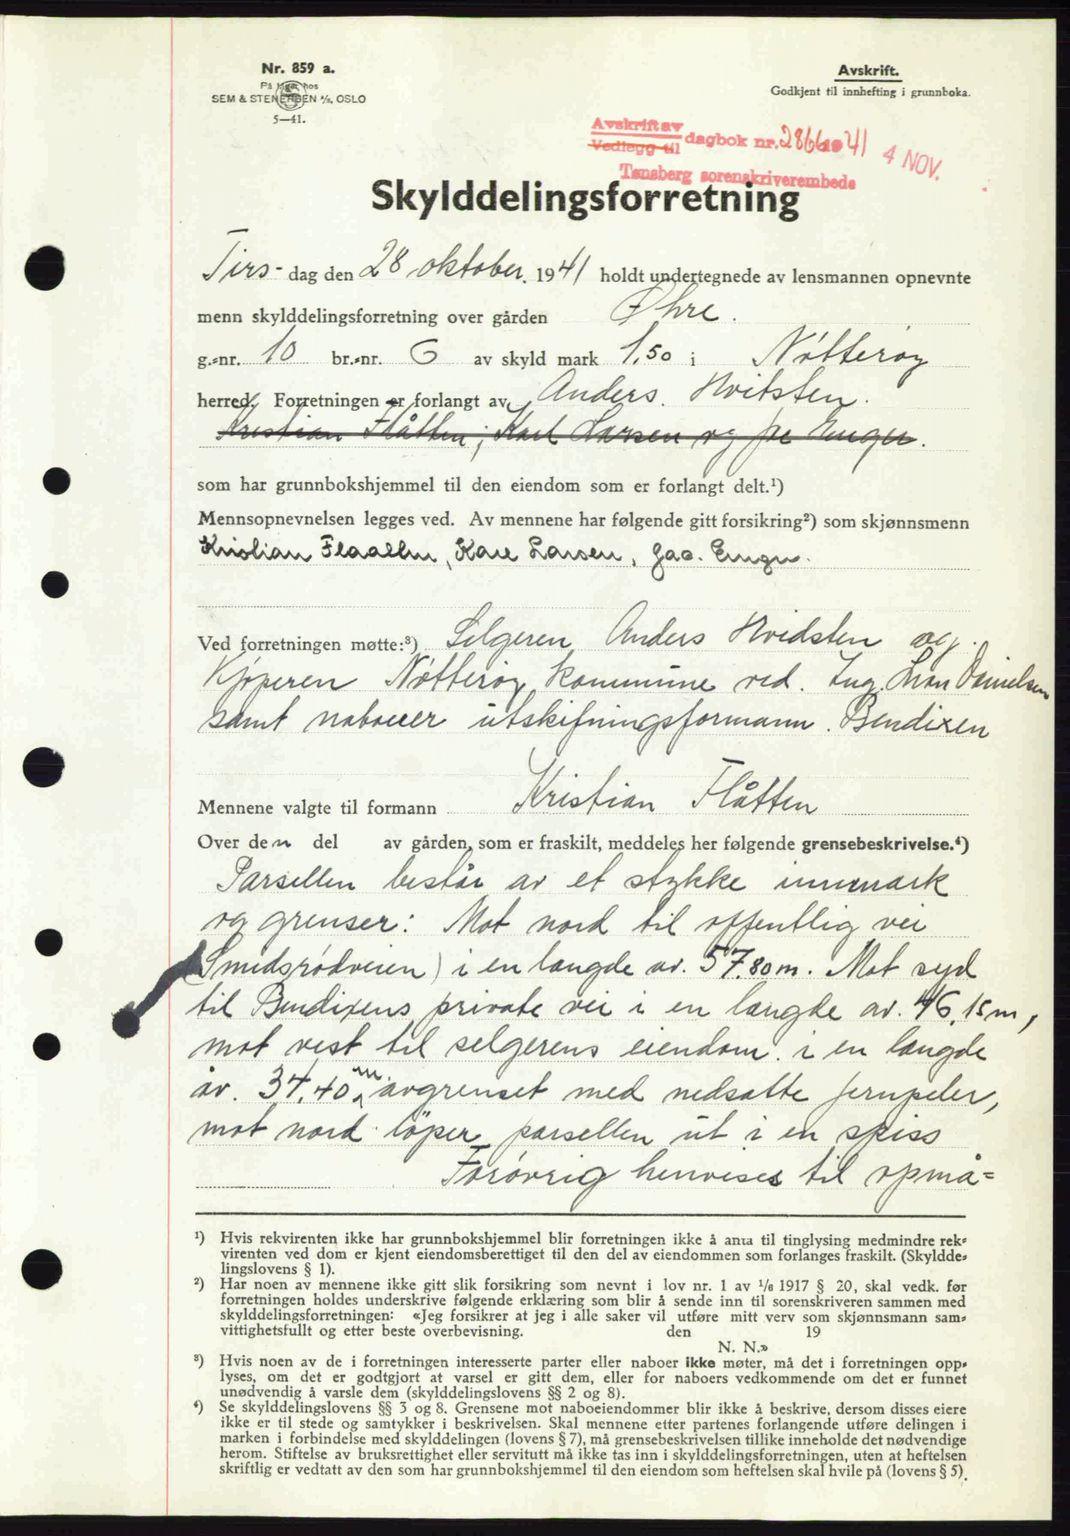 Nr. 859 a.
På lager hos
SEM & STENERSEN A/S, OSLO
5—41.
Avskrift.
Godkjent til innhefting i grunnboka.
Avskrift av
Vedlegg til
dagbok nr. 2866 1941
4 NOV.
Tønsberg sorenskriverembede
Skylddelingsforretning
Tirs- dag den 28 oktober. 1941 holdt undertegnede av lensmannen opnevnte
menn skylddelingsforretning over gården Øhre.
g.-nr. 10 br.-nr. 6 av skyld mark 1,50 i Nøtterøy
herred. Forretningen er forlangt av Anders. Hvitsten.
Kristian Flåtten; Karl Larsen og Unger.
som har grunnbokshjemmel til den eiendom som er forlangt delt.¹)
Mennsopnevnelsen legges ved. Av mennene har følgende gitt forsikring²) som skjønnsmenn
Kristian Flaatten, Kare Larsen, Jac. Unger.
Ved forretningen møtte:³) Selgeren Anders Hvidsten og
Kjøperen Nøtterøy kommune ved. Ing. Danielsen
samt naboer utskifningsformann. Bendixen
Mennene valgte til formann Kristian Flåtten
Over den del av gården, som er fraskilt, meddeles her følgende grensebeskrivelse.⁴)
Parsellen består av et stykke innmark
og grenser: Mot nord til offentlig vei
(Smidsrødveien) i en længde av. 57,80 m. Mot syd
til Bendixens private vei i en længde av. 46,15 m,
mot vest til selgerens eiendom. i en længde
av. 34,40 m avgrenset med nedsatte jernpeler,
mot nord løper parsellen ut i en spiss
Forøvrig henvises til opmå=
¹) Hvis rekvirenten ikke har grunnbokshjemmel blir forretningen ikke å anta til tinglysing medmindre rek-
virenten ved dom er kjent eiendomsberettiget til den del av eiendommen som forlanges fraskilt. (Skyldde-
lingslovens § 1).
²) Har noen av mennene ikke gitt slik forsikring som nevnt i lov nr. 1 av 1/6 1917 § 20, skal vedk. før
forretningen holdes underskrive følgende erklæring som blir å sende inn til sorenskriveren sammen med
skylddelingsforretningen: «Jeg forsikrer at jeg i alle saker vil utføre mitt verv som skjønnsmann sam-
vittighetsfullt og etter beste overbevisning. den 19
N. N.»
³) Hvis noen av de i forretningen interesserte parter eller naboer ikke møter, må det i forretningen opp-
lyses, om det er godtgjort at varsel er gitt dem, eller for naboers vedkommende om det er funnet
unødvendig å varsle dem (skylddelingslovens §§ 2 og 8).
⁴) Se skylddelingslovens §§ 3 og 8. Grensene mot naboeiendommer blir ikke å beskrive, dersom disses eiere
ikke er til stede og samtykker i beskrivelsen. Skal mennene etter partenes forlangende utføre delingen i
marken i forbindelse med skylddelingen (lovens § 7), må grensebeskrivelsen tillike inneholde det nødvendige
herom. Stiftelse av bruksrettighet eller servitutt må ikke tas inn i skylddelingsforretningen, uten at heftelsen
skriftlig er vedtatt av den som har grunnbokshjemmel til den eiendom som heftelsen skal hvile på (lovens § 5).